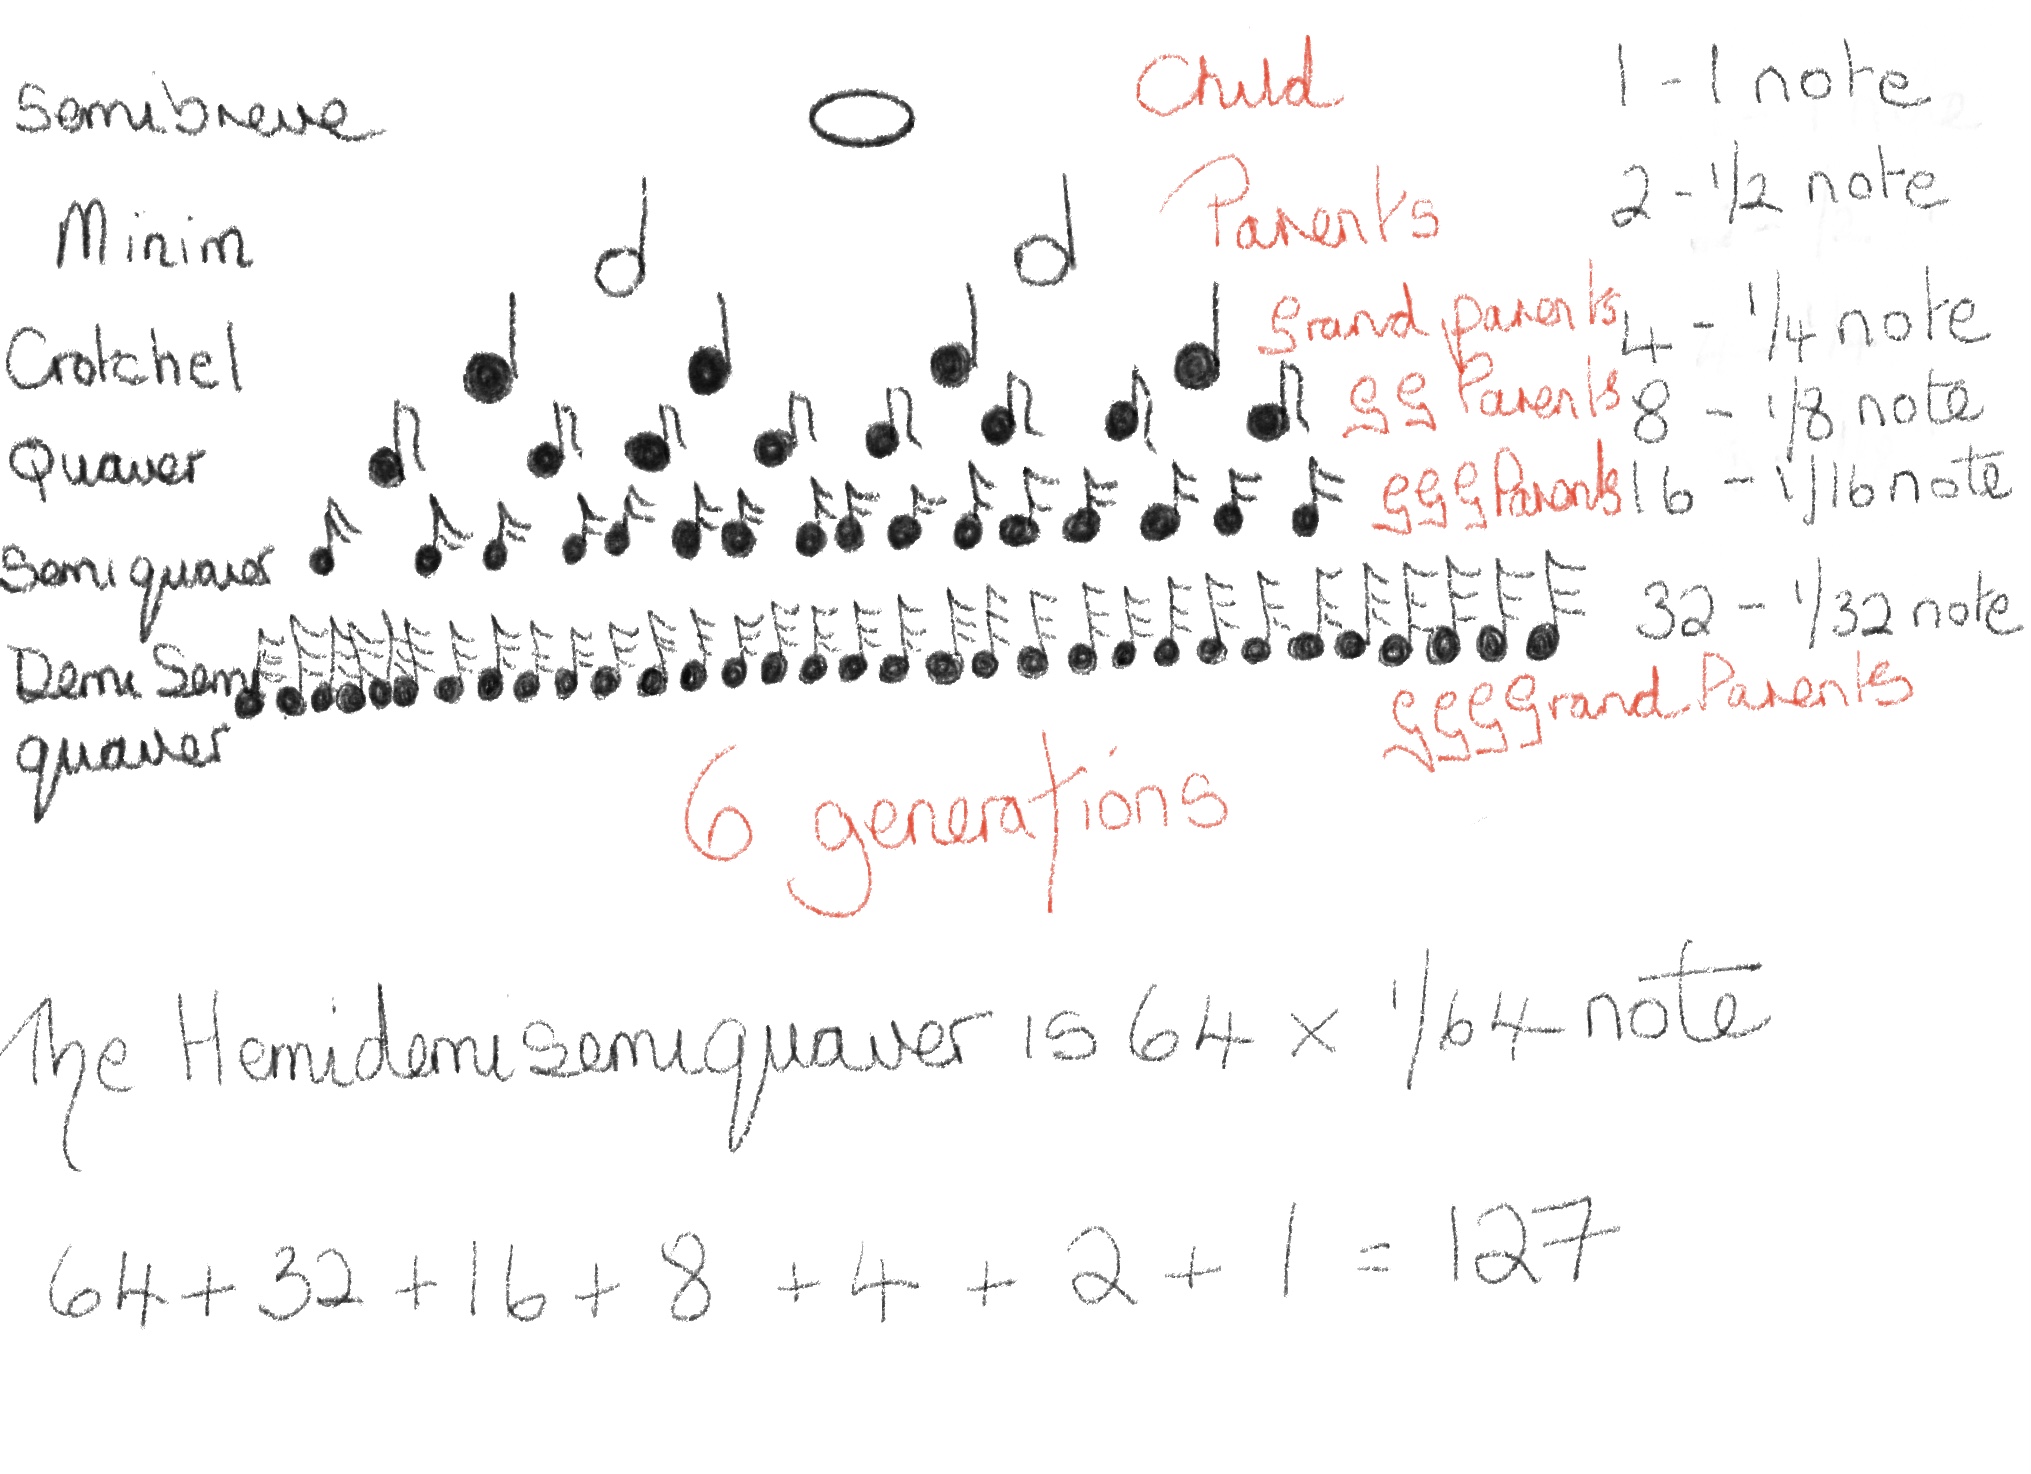 Semibreve Child 1 - 1 note
Minim Parents 2 - 1/2 note
Crotchel Grand parents 4 - 1/4 note
Quaver GG Parents 8 - 1/8 note
Semiquaver GGG Parents 16 - 1/16 note
Demi Semi 32 - 1/32 note
quaver GGGGrand Parents
6 generations
The Hemidemisemiquaver is 64 x 1/64 note
64 + 32 + 16 + 8 + 4 + 2 + 1 = 127